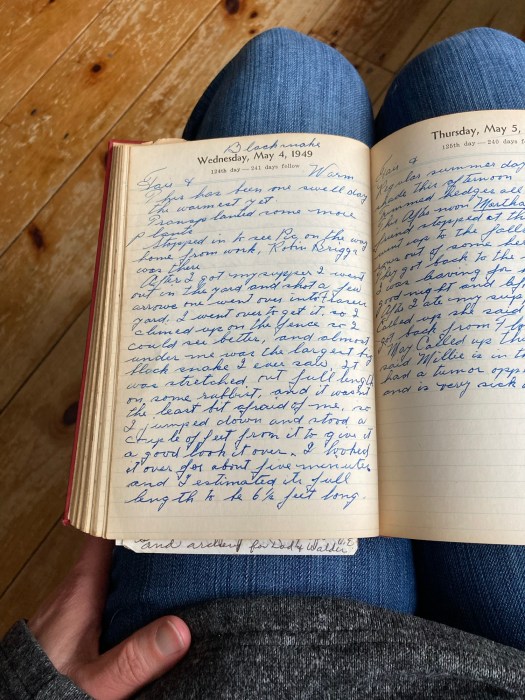 Blacksnake
Wednesday, May 4, 1949
124th day — 241 days follow
Fair & Warm
This has been one swell day
the warmest yet.
Transplanted some more
plants
Stopped in to see Peg, on the way
home from work, Robin Briggs
was there.
After I got my supper I went
out in the yard and shot a few
arrows one went over into
yard, I went over to get it, so I
climed up on the fence so I
could see better, and almost
under me was the largest big
black snake I ever saw, It
was stretched, out full length
on, some rubbish, and it wasn't
the least bit afraid of me, so
I jumped down and stood a
couple of feet from it to give it
a good look it over. I looked
it over for about five minutes
and I estimated its full
length to be 6½ feet long.
and for Dad & Walder
Thursday, May 5,
125th day — 240 days f
Fair &
Regular summer day
shade this afternoon
trimmed hedges all
the After noon Martha
friend stopped at the
went up to the falls
some of some her
They got back to the
I was leaving for
good night and left
After I ate my supp
Called up she said
got back from
May Called up the
said Willie is in t
had a tumor opp
and is very sick